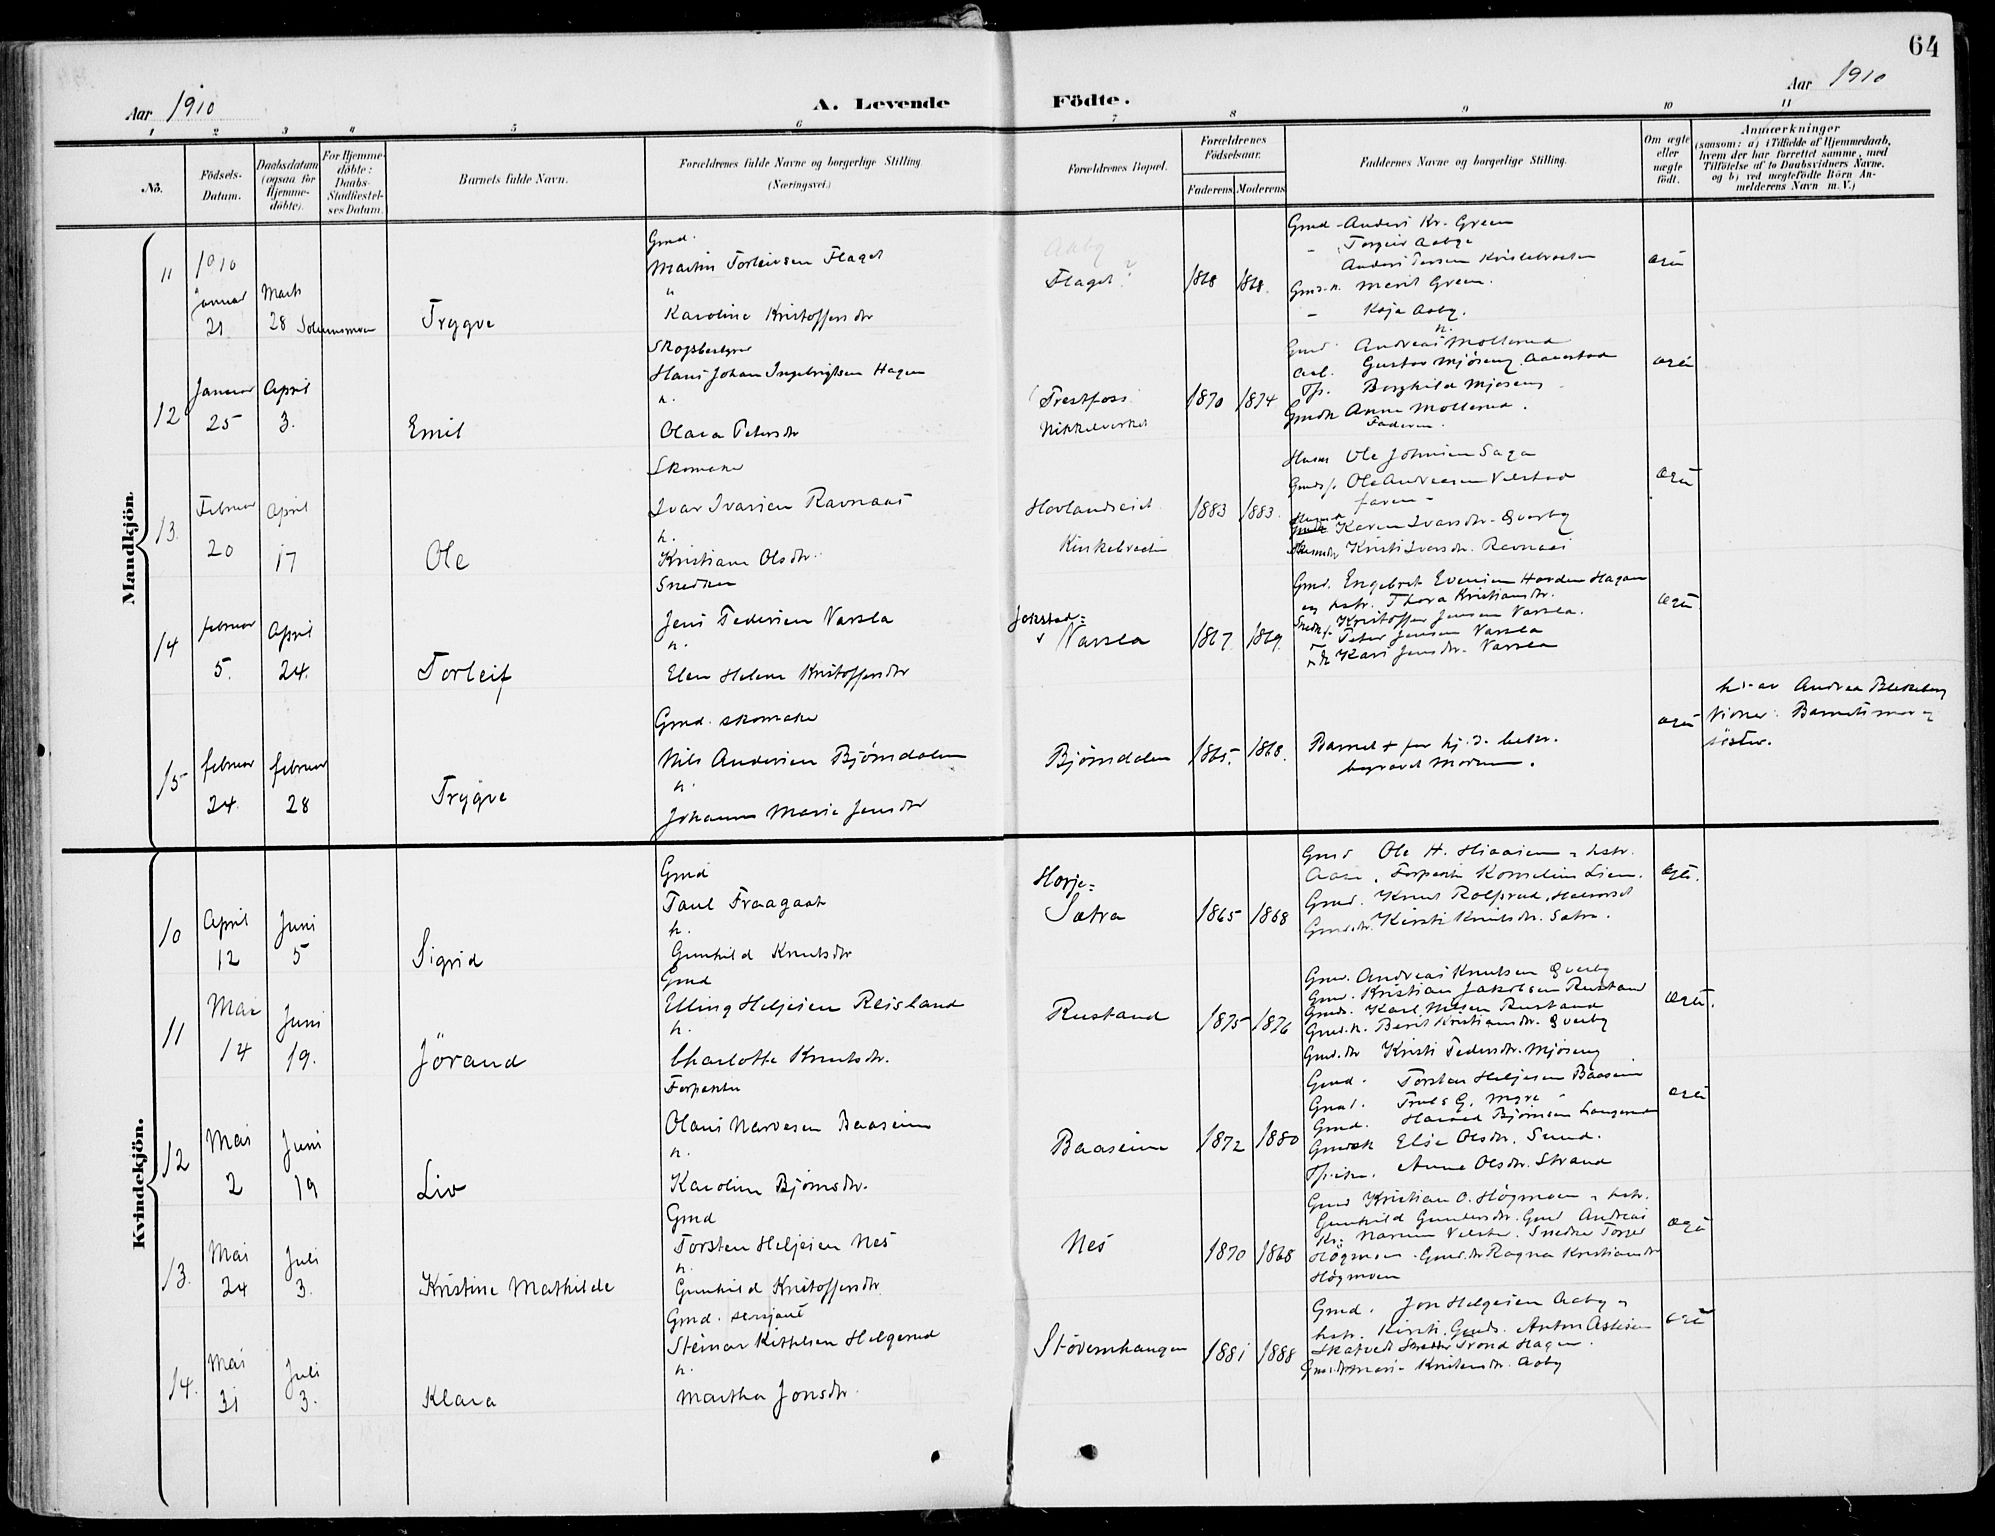 64
Aar 1910
A. Levende Födte.
Aar 1910
1 2 3 4 5 6 7 8 9 10 11
No.
Födsels-Datum.
Daabsdatum (ogsaa for Hjemme-döbte).
For Hjemme-döbte: Daabs-Stadfæstel-ses Datum.
Barnets fulde Navn.
Forældrenes fulde Navne og borgerlige Stilling
(Næringsvei.)
Forældrenes Bopæl.
Forældrenes Födselsaar.
Faderens Moderens
Faddernes Navne og borgerlige Stilling.
Om ægte eller uægte födt.
Anmærkninger
(saasom: a) i Tilfælde af Hjemmedaab, hvem der har forrettet samme, med Tilföielse af to Daabsvidners Navne. og b) ved uægtefödte Börn An-melderens Navn m. V.)
Mandkjön.
11
1910
Januar
21
Marts
28
Trygve
Gmd.
Martin Torleivsen Flaget
h
Karoline Kristoffersdtr
Aaby
Flaget?
1868 1868.
Gmd - Anders Kr. Green
Torgeir Aabye
Gmd.k. Marit Green.
- Kaja Aaby.
ægte
12
Januar
25
April
3.
Emil
Skogsbestyrer
Hans Johan Ingebrigtsen Hagen
h.
Olava Petersdtr
Trestfoss
Nikkelverket
1870 1874
Gmd. Andreas Mollerud
Gustav Mjøseng
Borghild Mjøseng
Gmdk Anne Mollerud.
Faderen.
ægte
13.
Februar
20
April
17
Ole
Skomaker
Ivar Ivarsen Ravnaas
h.
Kristiane Olsdtr.
Hovlandseiet
1883 1883.
Ole Johnsen Saga
Ole Andreasen Velstad
faren -
Karen Ivarsdtr. Gverby
Kristi Ivarsdtr. Ravnaas
ægte
14
februar
5.
April
24.
Torleif
Snedker
Jens Pedersen Varsla
h.
Elen Helene Kristoffersdtr
Jokstad=
Varsla
1867 1869.
Gmd. Engebret Evensen Horden Hagan
og hstr. Thora Kristiansdtr.
Kristoffer Jensen Varsla.
Peter Jensen Varsla
Kari Jensdtr. Varsla
ægte
15
februar
24.
februar
28
Trygve
Gmd. skomaker
Nils Andersen Bjørndalen
h.
Johanne Marie Jensdtr
Bjørndalen
1865. 1868.
Barnet + før hj.d. bekr.
begravet Modum.
ægte
hj. av Andrea Blekeberg
Vidner: Barnets mor og
søster.
Kvindekjön.
10
April
12
Juni
5
Sigrid
Gmd
Paul Fraagaat
h.
Gunhild Knutsdtr
Horje=
Sætra
1865 1868
Gmd Ole H. Hiaasen og hstr.
Aase. Forpagter Kornelius Lien.
Gmd. Knut Rolfsrud,
Gmd.dtr. Kirsti Knutsdtr. Sætra.
ægte.
11
Mai
14
Juni
19.
Jörand
Gmd
Elling Heljesen Reisland
h.
Charlotte Knutsdtr.
Rustand
1875 1876
Gmd. Andreas Knutsen Gverby
Gmd. Kristian Jakobsen Rustand
Gmds. Karl Nilsen Rustand
Gmd.k. Berit Kristiansdtr. Gverby
Gmd.dtr Kristi Pedersdtr. Mjøseng
ægte.
12
Mai
2
Juni
19
Liv
Forpakter
Olaus Narvesen Baaseim
h.
Karoline Bjørnsdtr.
Baaseim
1872 1880
Gmd. Torsten Heljesen Baaseim
Gmd. Truls G. Myre
Gmd. Harald Bjørnsen
Else Olsdtr. Sund.
Anne Olsdtr. Strand
ægte
13.
Mai
24
Juli
3.
Kristine Mathilde
Gmd
Torsten Heljesen Nes
h.
Gunhild Kristoffersdtr
Nes
1870 1868
Gmd Kristian O. Högmoen og hstr.
Gunhild Gundersdtr. Gmd Andreas
Högmoen. Gmd.dtr Ragna Kristiansdtr
Högmoen
ægte
14.
Mai
31
Juli
3.
Klara
Gmd. sersjant
Steinar Kittelsen Helgerud
h.
Martha Jonsdtr.
Støvernhaugen
1881 1888
Gmd. Jon Helgesen Aaby og
hstr. Kirsti. Gmds. Anton Asleson
Skatvedt Trond Hagen.
Marie Knutsdtr. Aaby
ægte